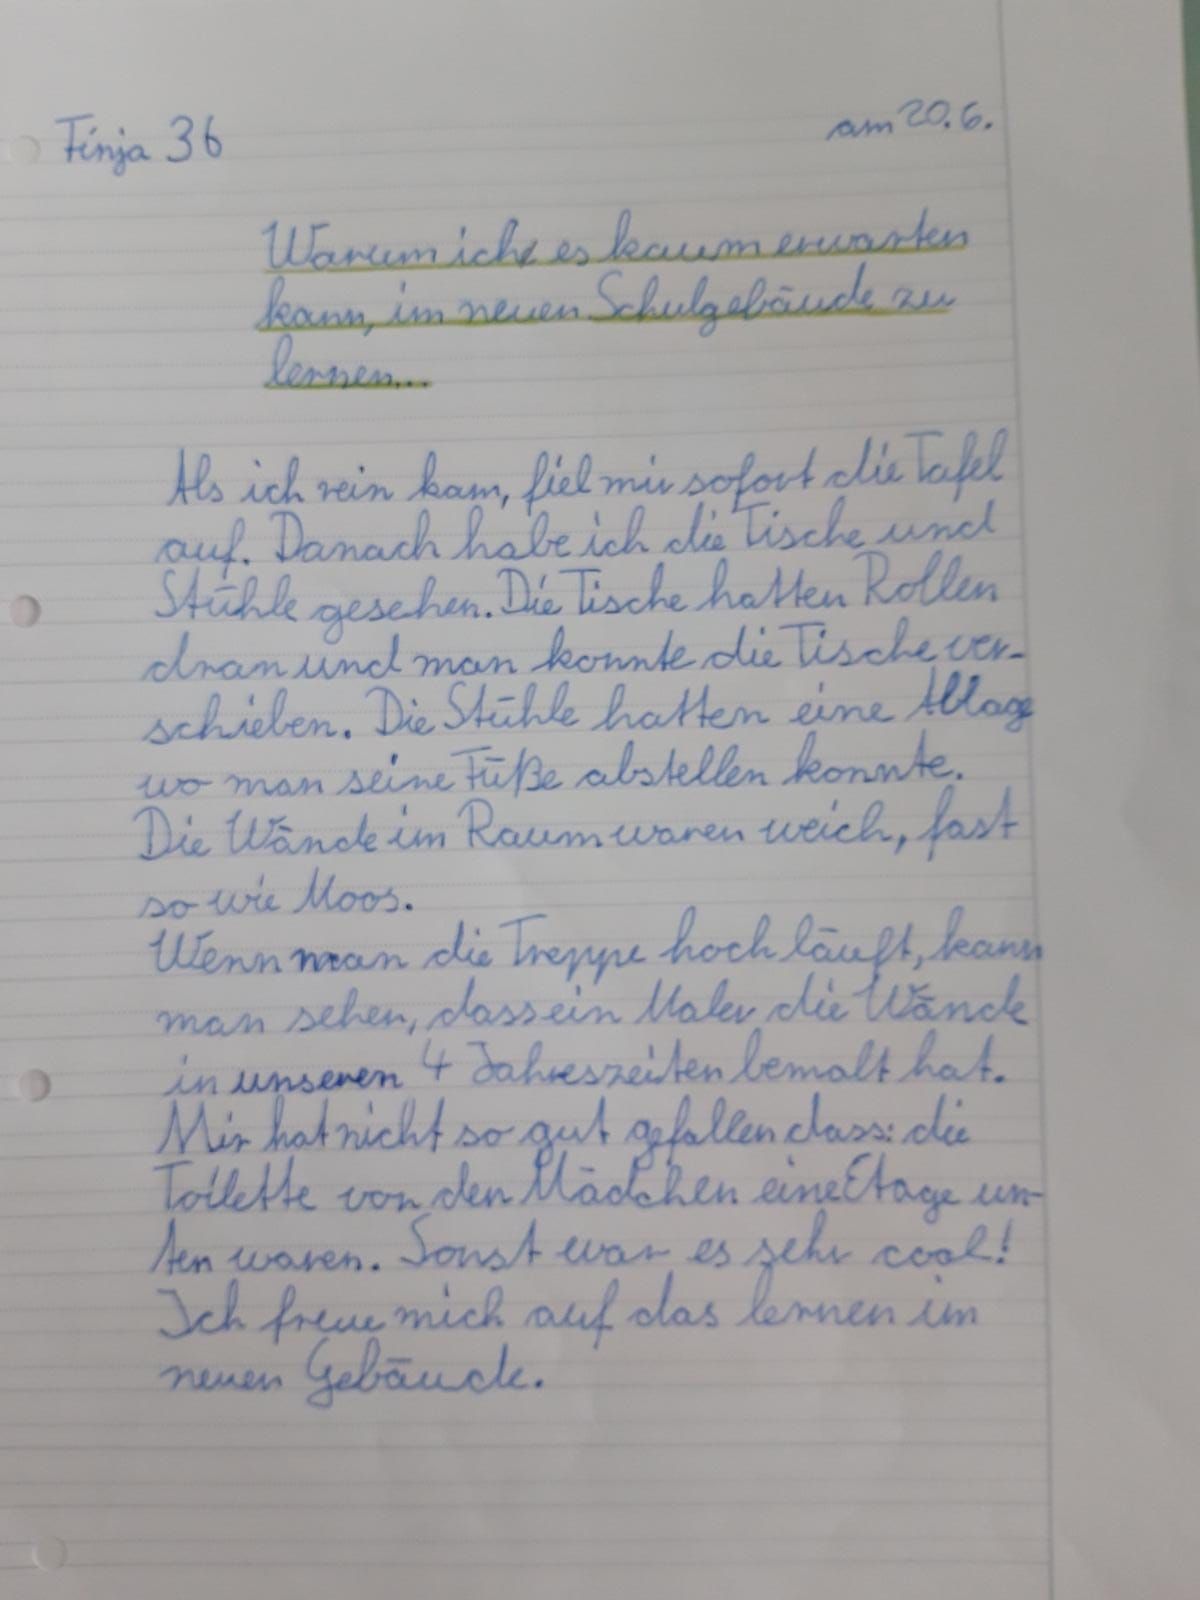 Finja 3b
am 20.6.
Warum ich es kaum erwarten
kann, im neuen Schulgebäude zu
lernen...
Als ich rein kam, fiel mir sofort die Tafel
auf. Danach habe ich die Tische und
Stühle gesehen. Die Tische hatten Rollen
dran und man konnte die Tische ver-
schieben. Die Stühle hatten eine Ablage
wo man seine Füße abstellen konnte.
Die Wände im Raum waren weich, fast
so wie Moos.
Wenn man die Treppe hoch läuft, kann
man sehen, dass ein Maler die Wände
in unseren 4 Jahreszeiten bemalt hat.
Mir hat nicht so gut gefallen dass: die
Toilette von den Mädchen eine Etage un-
ten waren. Sonst war es sehr cool!
Ich freue mich auf das lernen im
neuen Gebäude.